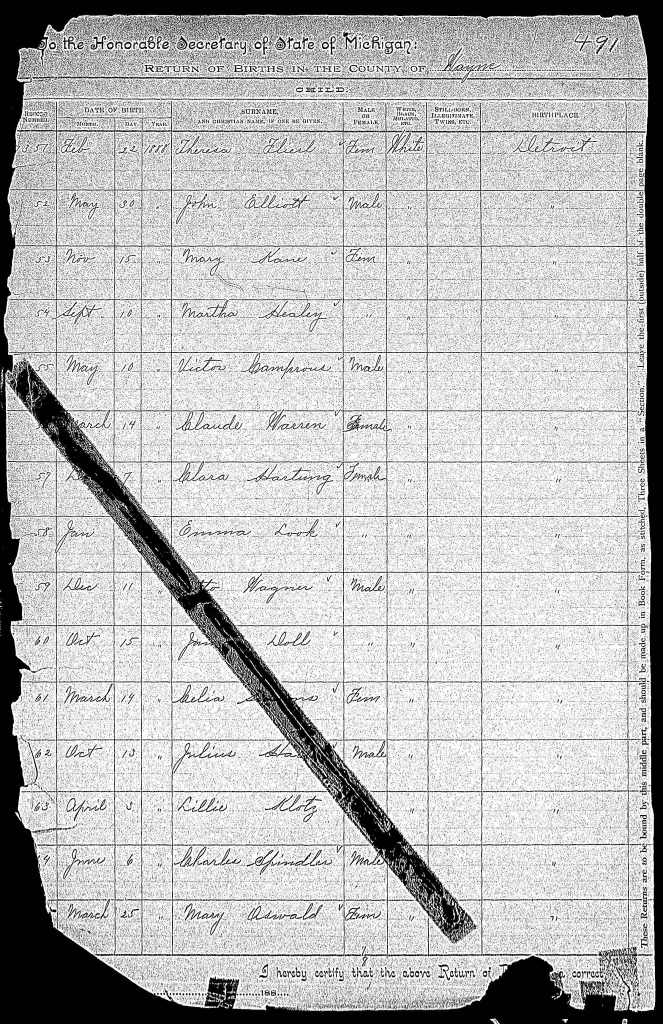 To the Honorable Secretary of State of Michigan: 491
RETURN OF BIRTHS IN THE COUNTY OF Wayne
CHILD.
RECORD NUMBER. DATE OF BIRTH. MONTH. DAY. YEAR. SURNAME, AND CHRISTIAN NAME, IF ONE BE GIVEN. MALE OR FEMALE. WHITE, BLACK, MULATTO, ETC. STILLBORN, ILLEGITIMATE, TWINS, ETC. BIRTHPLACE
51 Feb 22 1888 Theresa Fem White Detroit
52 May 30 " John Elliott Male " "
53 Nov 15 " Mary Kane Fem " "
54 Sept 10 " Martha Healey " " "
55 May 10 " Victor Male " "
March 14 " Claude Warren Female " "
57 7 " Clara Hartung Female " "
58 Jan " Emma Look " " "
59 Dec 11 " Wagner Male " "
60 Oct 15 " Doll " " "
61 March 14 " Celia Fem " "
62 Oct 13 " Julius Male " "
63 April 3 " Lillie Klotz " "
June 6 " Charles Spindler Male "
March 25 " Mary Oswald Fem " "
I hereby certify that the above Return of correct
188
These Returns are to be bound by this middle part, and should be made up in Book Form, as stitched, Three Sheets in a "Section." Leave the first (outside) half of the double page blank.